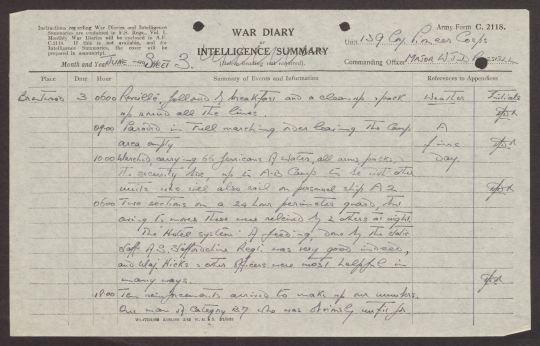 Instructions regarding War Diaries and Intelligence
Summaries are contained in F.S. Regs., Vol. I.
Monthly War Diaries will be enclosed in A.F.
C.2119. If this is not available, and for
Intelligence Summaries, the cover will be
prepared in manuscript.
WAR DIARY
or
INTELLIGENCE SUMMARY
(Delete heading not required).
Army Form C. 2118.
Unit 139 Coy. Pioneer Corps
Month and Year June Sheet 3.
Commanding Officer Major W.
Place Date Hour Summary of Events and Information References to Appendices
Brentwood 3 0600 Reveille, followed by breakfast and a clean up & pack Weather Initials
up around all the lines.
0900 Paraded in Full marching order leaving the Camp A
area empty fine
1000 Marched, carrying 66 Jerricans of water, all arms packs, day.
the security, up to A-B Camp to be with other
units who will also sail on personnel ship A 2
0600 Two sections on a 24 hour perimeter guard, but
owing to moves these were relieved by 2 others at night.
The Hotel system of feeding, done by the static
Staff of S. Staffordshire Regt. was very good indeed,
and Maj Hicks & other officers were most helpful in
many ways.
1800 Ten reinforcements arrived to make up our numbers.
One man of Category B7 who was obviously unfit for